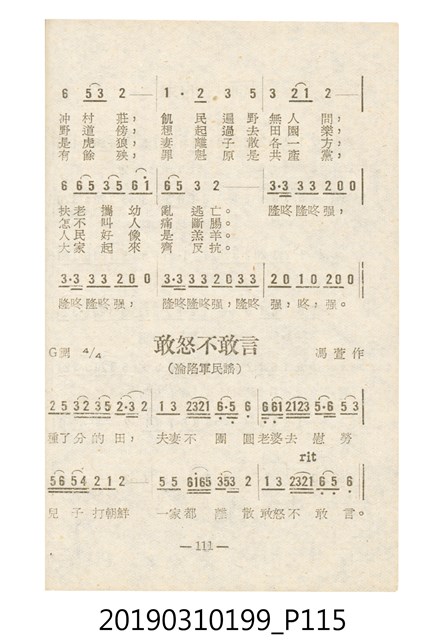 6 53 2— | 1· 2 3 5 | 3 21 2— |
冲村莊， 飢民遍野無人問，
野道傍， 想起過去田園樂，
是虎狼， 妻離子散各一方，
有餘殃， 罪魁原是共產黨，
6 65 35 61 | 65 32— | 3·3 33 200 |
扶老攜幼 亂逃亡。 隆咚隆咚强，
怎不叫人 痛斷腸。
人民好像 是羔羊。
大家起來 齊反抗。
3·3 33 200 | 3·3 33 20 33 | 20 10 200 |
隆咚隆咚强， 隆咚隆咚强隆咚 强，咚，强。
敢怒不敢言
G調 4/4
馮萱作
（淪陷軍民謠）
25 32 35 2·32 | 13 2321 6·5 6 | 661 2123 5·6 53 |
種了分的田， 夫妻不團圓老婆去慰勞
rit
56 54 212— | 55 6165 353 2 | 13 2321 65 6 |
兒子打朝鮮 一家都離散敢怒不敢言。
—111—
20190310199_P115